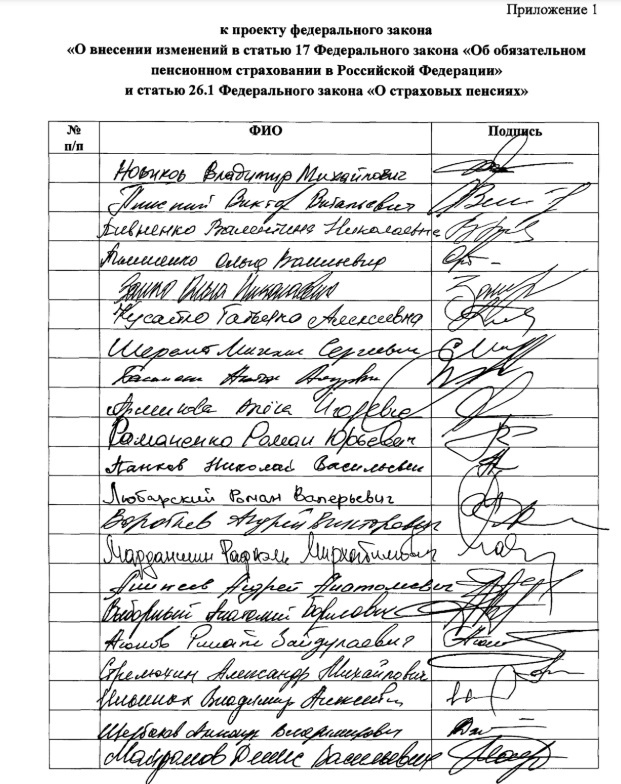 Приложение 1
к проекту федерального закона
«О внесении изменений в статью 17 Федерального закона «Об обязательном
пенсионном страховании в Российской Федерации»
и статью 26.1 Федерального закона «О страховых пенсиях»
№ п/п ФИО Подпись
Новиков Владимир Михайлович
Пинский Виктор Витальевич
Пивненко Валентина Николаевна
Ольга
Кусайко Татьяна Алексеевна
Шеремет Михаил Сергеевич
Игоревна
Романенко Роман Юрьевич
Панков Николай Васильевич
Любарский Роман Валерьевич
Воробьев Андрей Викторович
Марданшин Рафаэль Мирхатимович
Андрей Анатольевич
Выборный Анатолий Борисович
Аюпов Ринат Зайдулаевич
Стрелюхин Александр Михайлович
Владимир
Щербаков Александр Владимирович
Майданов Денис Васильевич